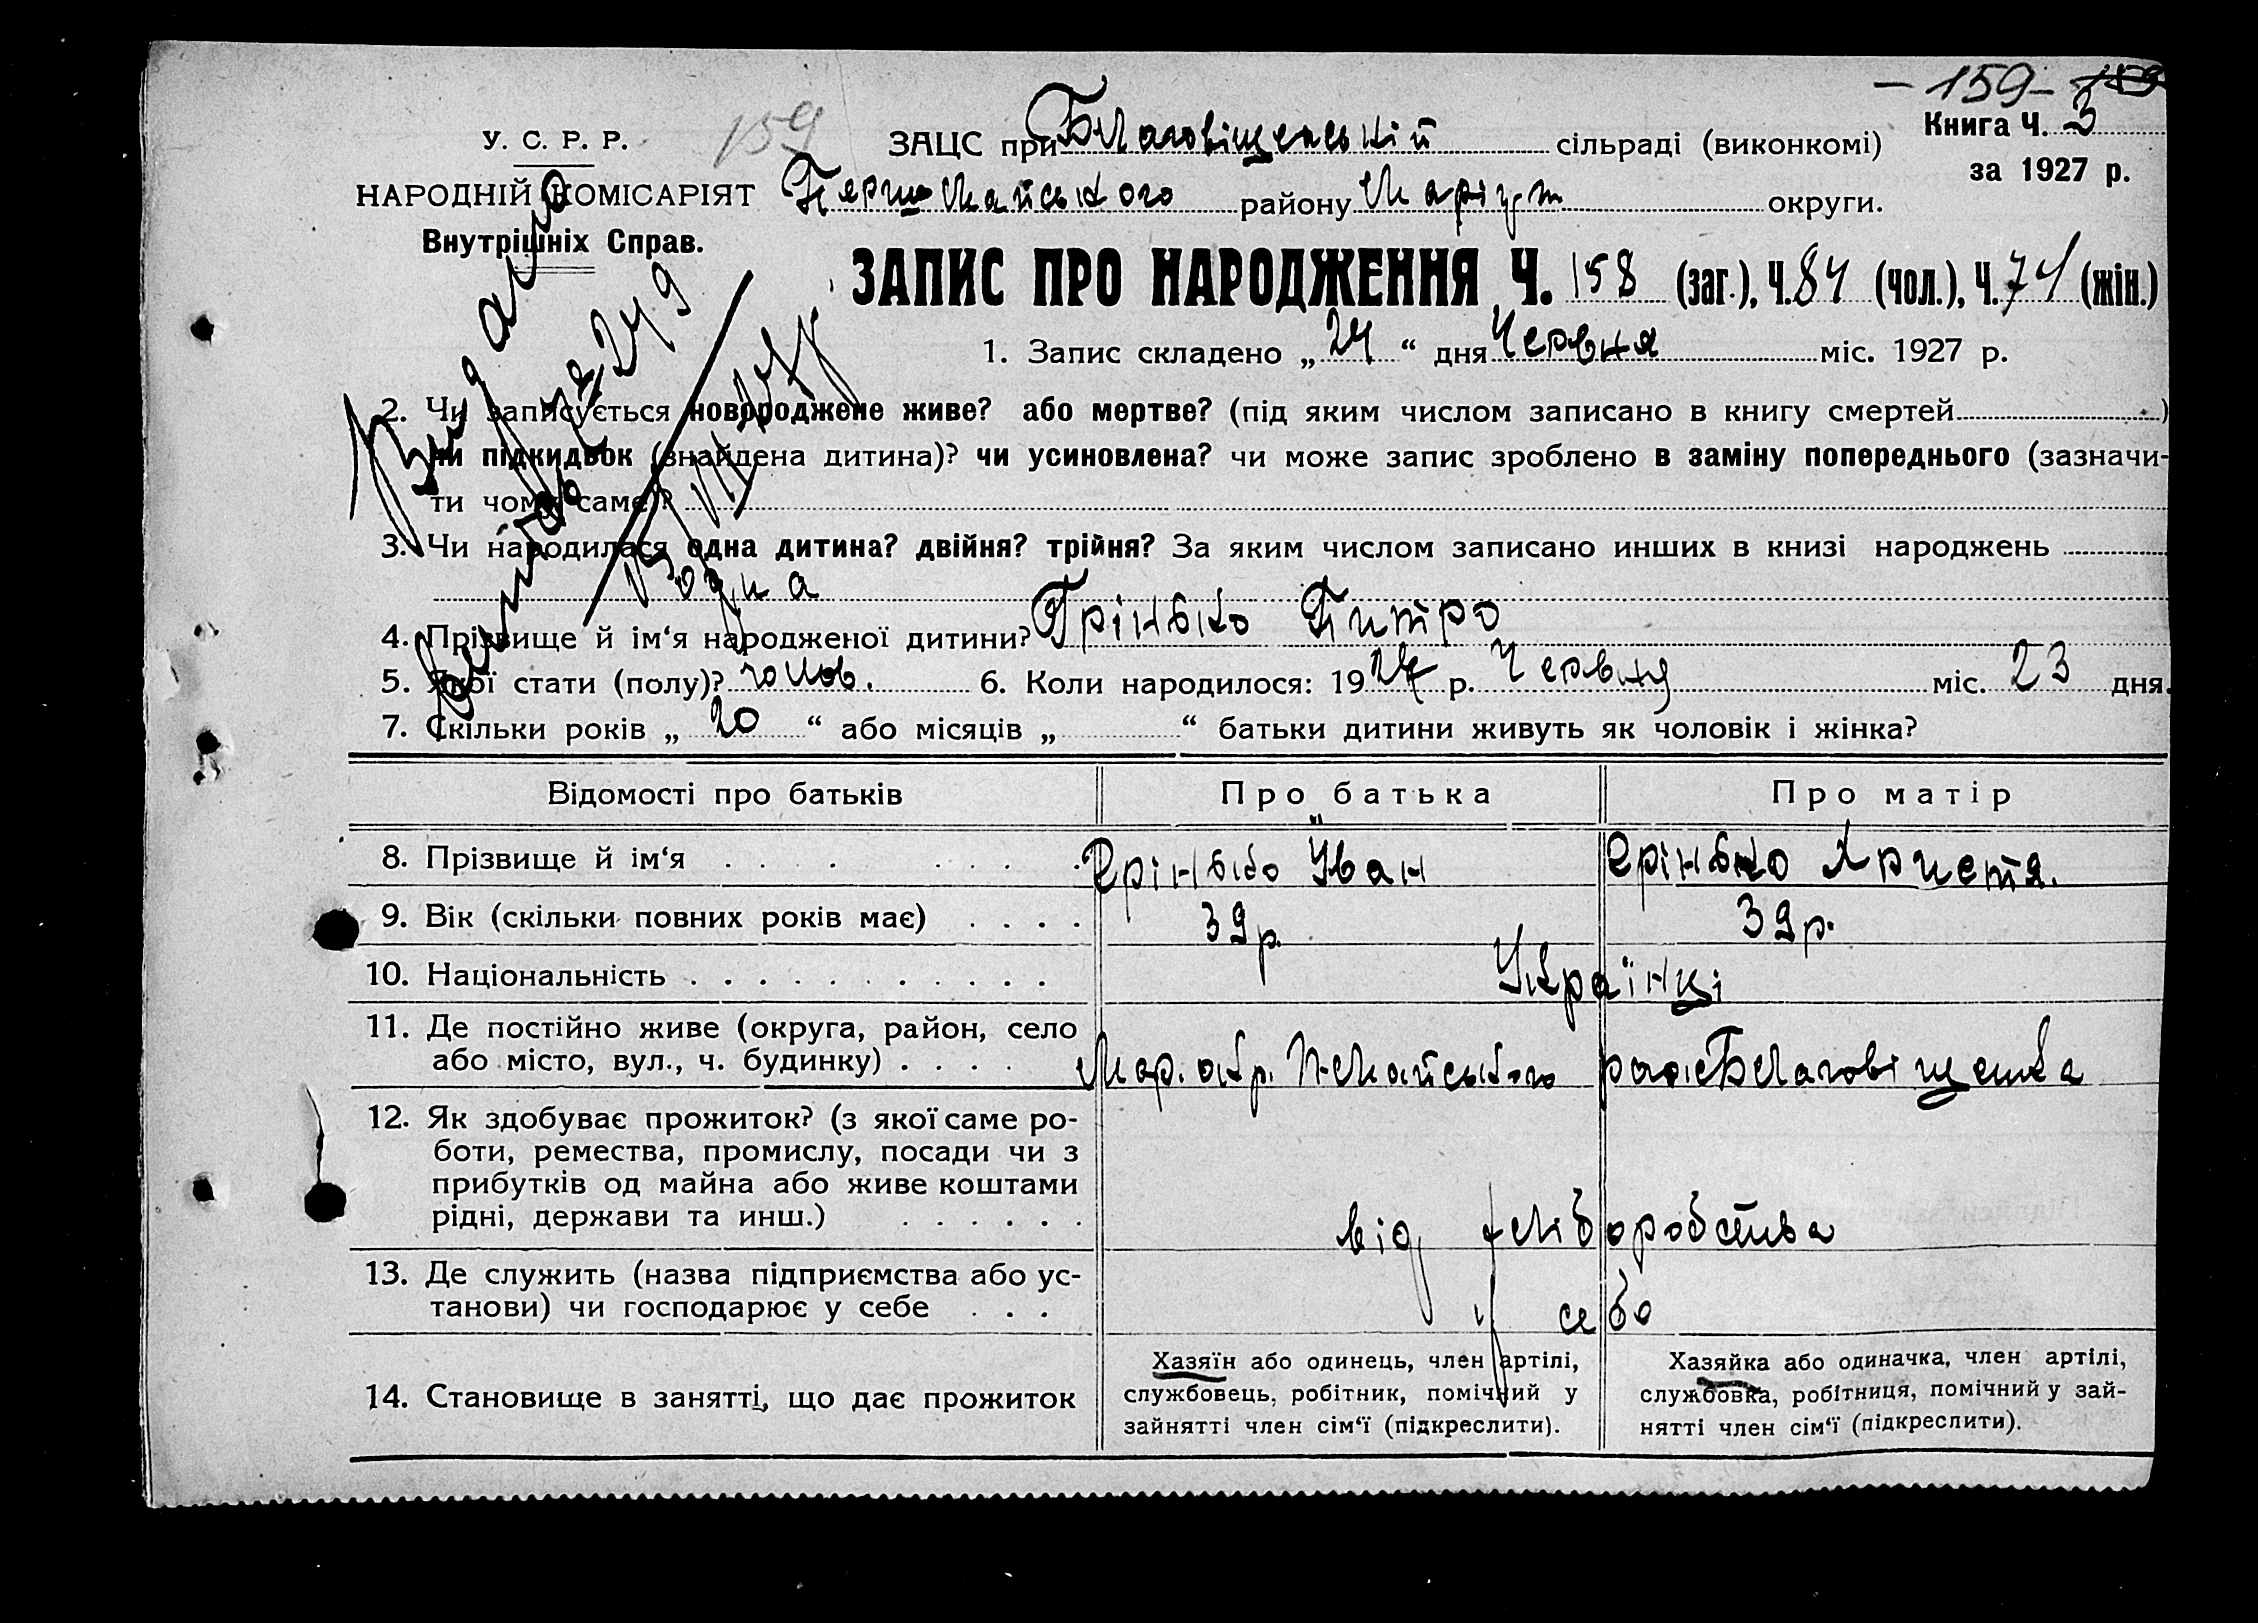 - 159 -
У. С. Р. Р.
159
ЗАЦС при Благовіщенській сільраді (виконкомі)
Книга Ч. 3
за 1927 р.
НАРОДНІЙ КОМІСАРІЯТ
Першомайського району Маріуп округи.
Внутрішніх Справ.
ЗАПИС ПРО НАРОДЖЕННЯ Ч. 158 (заг.), Ч. 84 (чол.), Ч. 74 (жін.)
1. Запис складено „ 24 “ дня Червня міс. 1927 р.
2. Чи записується новороджене живе? або мертве? (під яким числом записано в книгу смертей )
чи підкидьок (знайдена дитина)? чи усиновлена? чи може запис зроблено в заміну попереднього (зазначи-
ти чому саме)?
3. Чи народилася одна дитина? двійня? трійня? За яким числом записано инших в книзі народжень
одна
4. Прізвище й ім‘я народженої дитини? Грінько Питро
5. Якої стати (полу)? чолов. 6. Коли народилося: 1927 р. Червня міс. 23 дня.
7. Скільки років „ 20 “ або місяців „ “ батьки дитини живуть як чоловік і жінка?
Відомості про батьків Про батька Про матір
8. Прізвище й ім‘я Грінько Іван Грінько Христя.
9. Вік (скільки повних років має) 39 р. 39 р.
10. Національність Українці
11. Де постійно живе (округа, район, село
або місто, вул., ч. будинку) Мар. окр. П-Майського рай. Благовіщенка
12. Як здобуває прожиток? (з якої саме ро-
боти, ремества, промислу, посади чи з
прибутків од майна або живе коштами
рідні, держави та инш.) від хліборобства
13. Де служить (назва підприємства або ус-
танови) чи господарює у себе у себе
14. Становище в занятті, що дає прожиток
Хазяїн або одинець, член артілі,
службовець, робітник, помічний у
зайнятті член сім‘ї (підкреслити).
Хазяйка або одиначка, член артілі,
службовка, робітниця, помічний у зай-
нятті член сім‘ї (підкреслити).